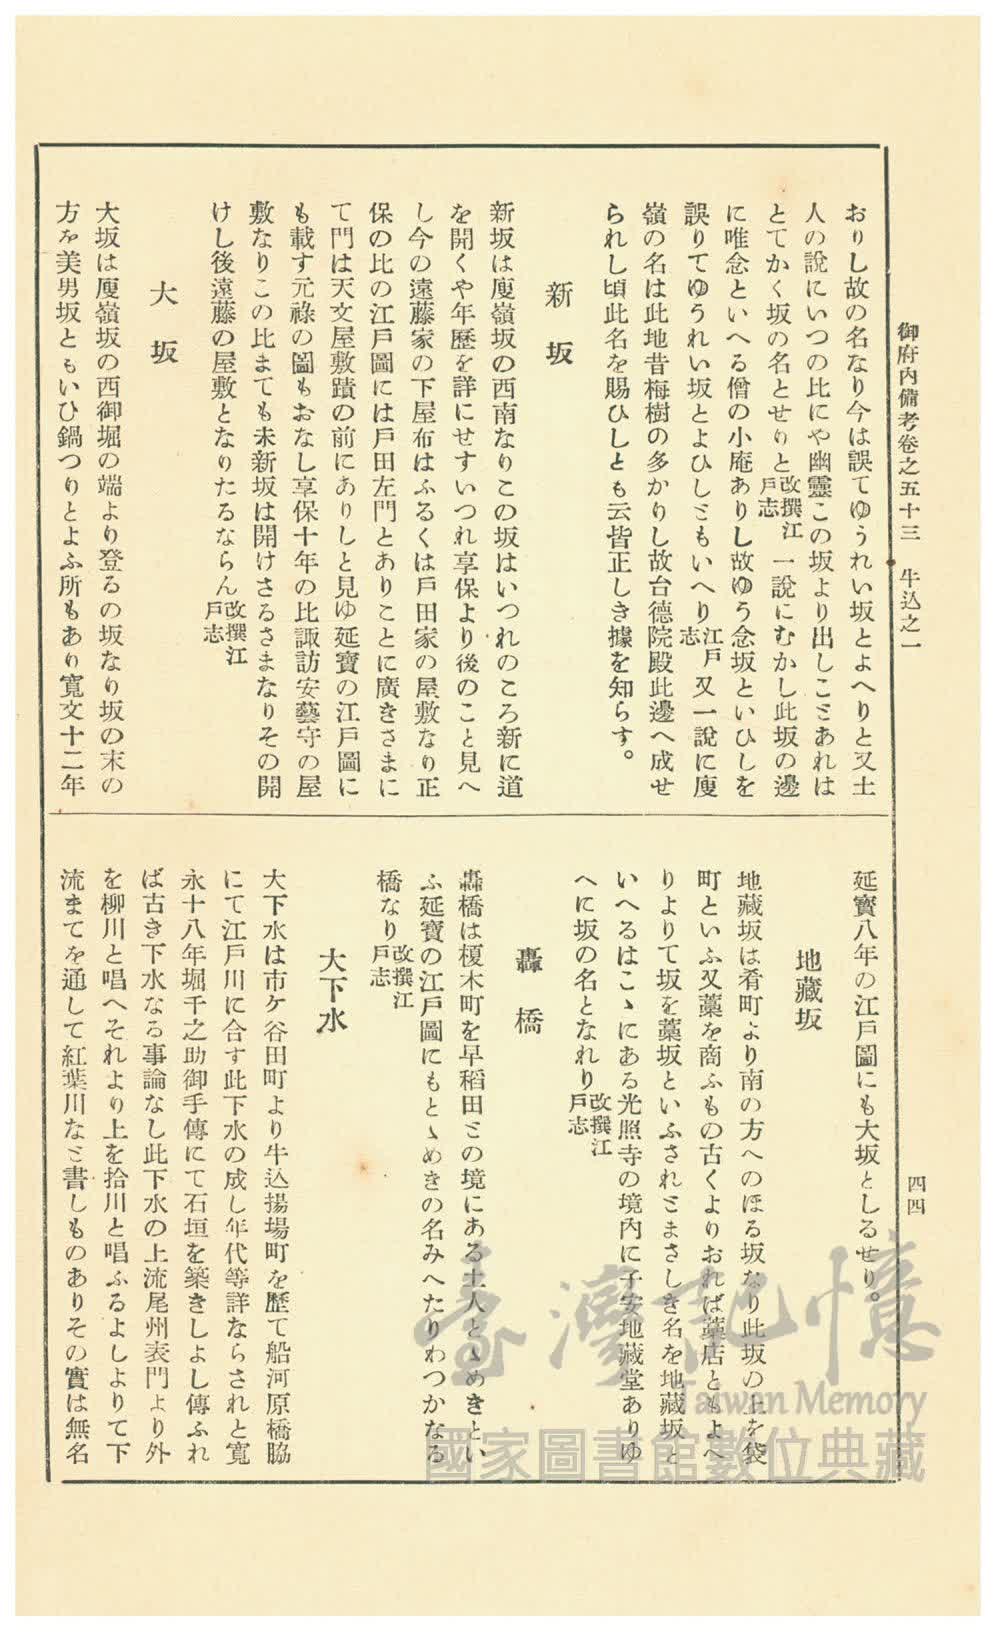 御府內備考卷之五十三　牛込之一
四四
おりし故の名なり今は誤てゆうれい坂とよへりと又土
人の說にいつの比にや幽靈この坂より出しこヾあれは
とてかく坂の名とせりと改撰江戶志　一說にむかし此坂の邊
に唯念といへる僧の小庵ありし故ゆう念坂といひしを
誤りてゆうれい坂とよひしヾもいへり江戶志　又一說に廋
嶺の名は此地昔梅樹の多かりし故台德院殿此邊へ成せ
られし頃此名を賜ひしとも云皆正しき據を知らす。
新坂
新坂は廋嶺坂の西南なりこの坂はいつれのころ新に道
を開くや年歷を詳にせすいつれ享保より後のことと見へ
し今の遠藤家の下屋布はふるくは戶田家の屋敷なり正
保の比の江戶圖には戶田左門とありことに廣きさまに
て門は天文屋敷蹟の前にありしと見ゆ延寶の江戶圖に
も載す元祿の圖もおなし享保十年の比諏訪安藝守の屋
敷なりこの比まても未新坂は開けさるさまなりその開
けし後遠藤の屋敷となりたるならん改撰江戶志
大坂
大坂は廋嶺坂の西御堀の端より登るの坂なり坂の末の
方を美男坂ともいひ鍋つりとよふ所もあり寬文十二年
延寶八年の江戶圖にも大坂としるせり。
地藏坂
地藏坂は肴町より南の方へのほる坂なり此坂の上を袋
町といふ又藁を商ふもの古くよりおれば藁店ともよへ
りよりて坂を藁坂といふされヾまさしき名を地藏坂と
いへるはこゝにある光照寺の境內に子安地藏堂ありゆ
へに坂の名となれり改撰江戶志
轟橋
轟橋は榎木町を早稻田との境にある土人とゝめきとい
ふ延寶の江戶圖にもとゝめきの名みへたりわつかなる
橋なり改撰江戶志
大下水
大下水は市ケ谷田町より牛込揚場町を歷て船河原橋脇
にて江戶川に合す此下水の成し年代等詳ならされと寬
永十八年堀千之助御手傳にて石垣を築きしよし傳ふれ
ば古き下水なる事論なし此下水の上流尾州表門より外
を柳川と唱へそれより上を拾川と唱ふるよしよりて下
流まてを通して紅葉川なヾ書しものありその實は無名
臺灣記憶
Taiwan Memory
國家圖書館數位典藏